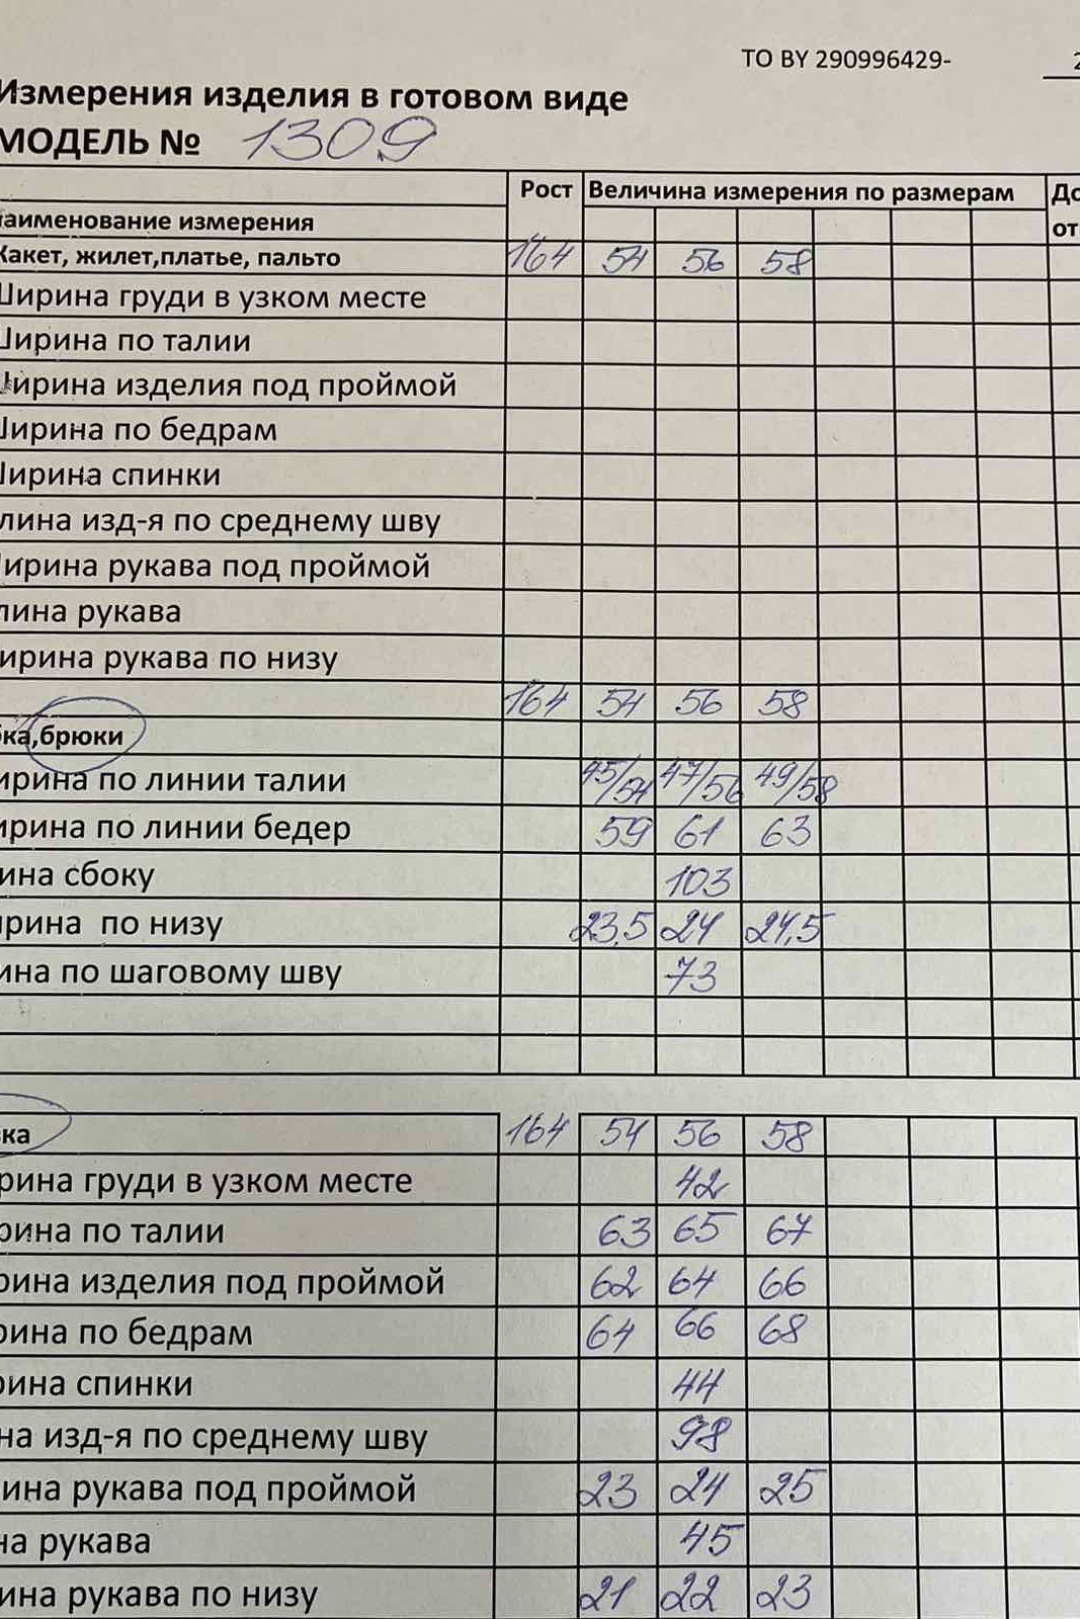 ТО BY 290996429-
Измерения изделия в готовом виде
МОДЕЛЬ № 1309
Рост Величина измерения по размерам До
аименование измерения от
Жакет, жилет,платье, пальто 164 54 56 58
Ширина груди в узком месте
Ширина по талии
Ширина изделия под проймой
Ширина по бедрам
Ширина спинки
лина изд-я по среднему шву
ирина рукава под проймой
лина рукава
ирина рукава по низу
164 54 56 58
ка,брюки
ирина по линии талии 45/54 47/56 49/58
ирина по линии бедер 59 61 63
ина сбоку 103
ирина по низу 23,5 24 24,5
ина по шаговому шву 73
ка 164 54 56 58
рина груди в узком месте 42
рина по талии 63 65 67
рина изделия под проймой 62 64 66
рина по бедрам 64 66 68
рина спинки 44
на изд-я по среднему шву 98
ина рукава под проймой 23 24 25
на рукава 45
ина рукава по низу 21 22 23